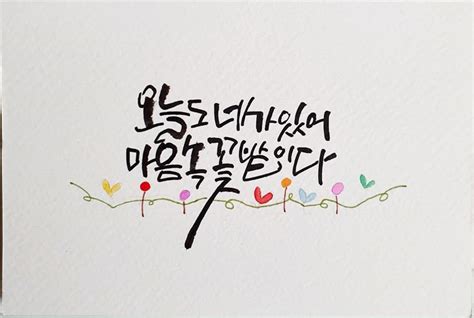 오늘도 네가 있어
마음속 꽃밭이다